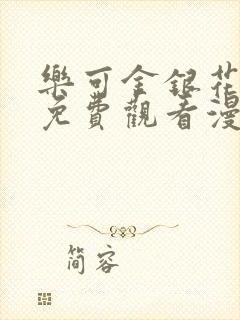 樂可金銀花
免費觀看漫
简容